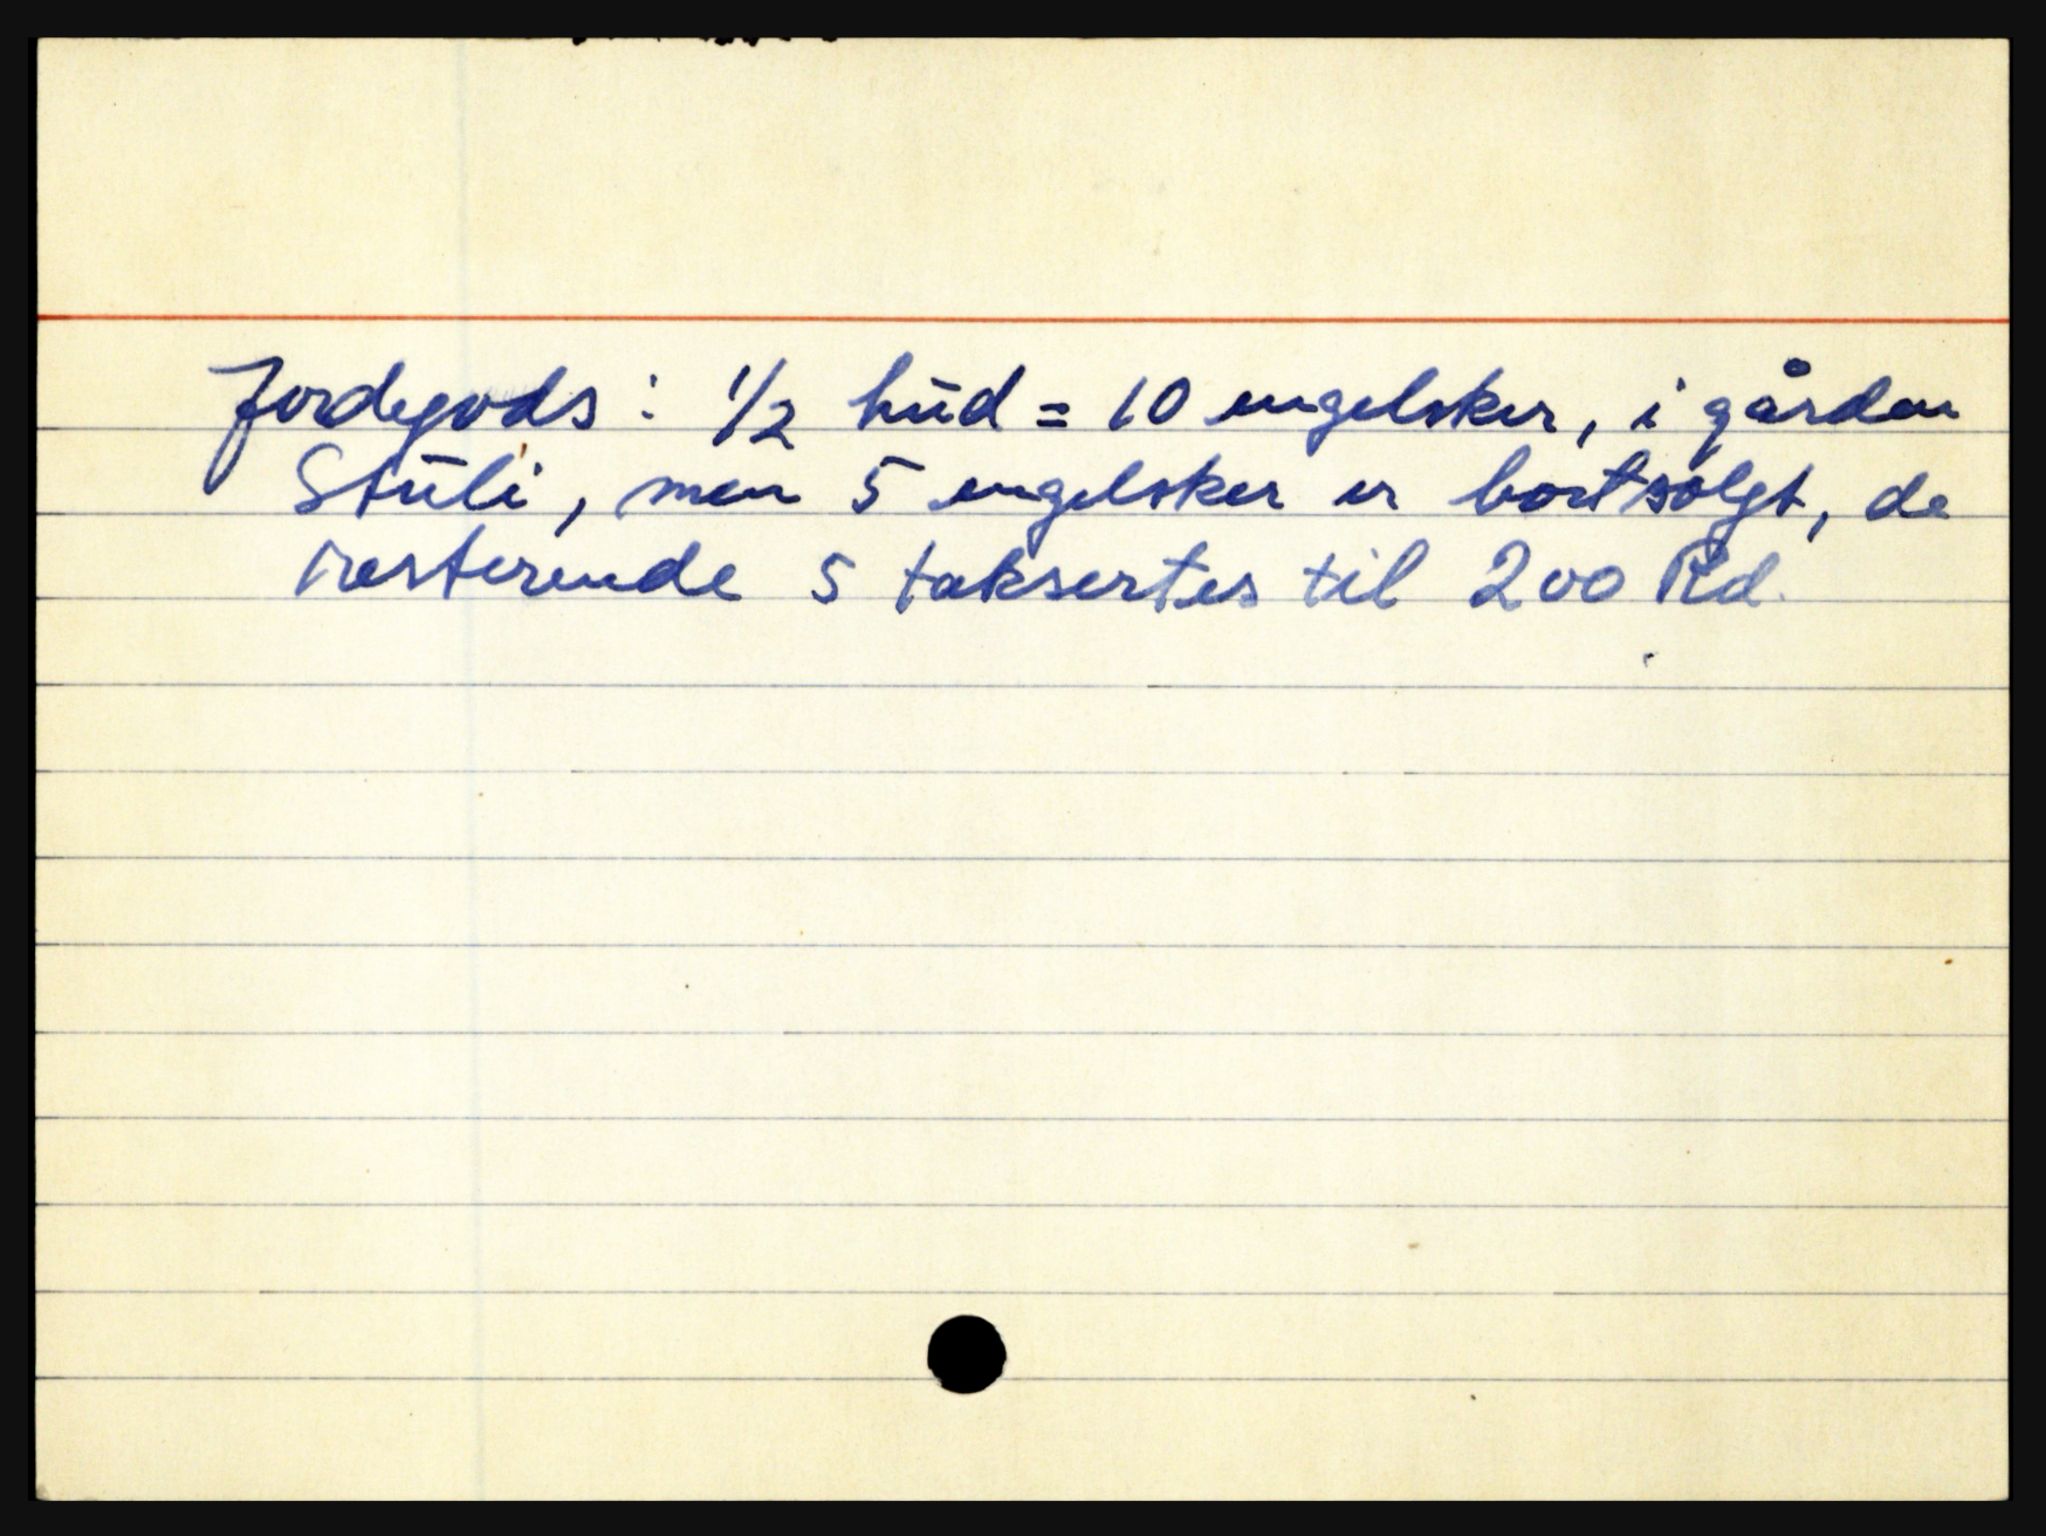 Jordegods: 1/2 hud = 10 engelsker, i gården
Stuli, men 5 engelsker er bortsolgt, de
resterende 5 taksertes til 200 Rd.